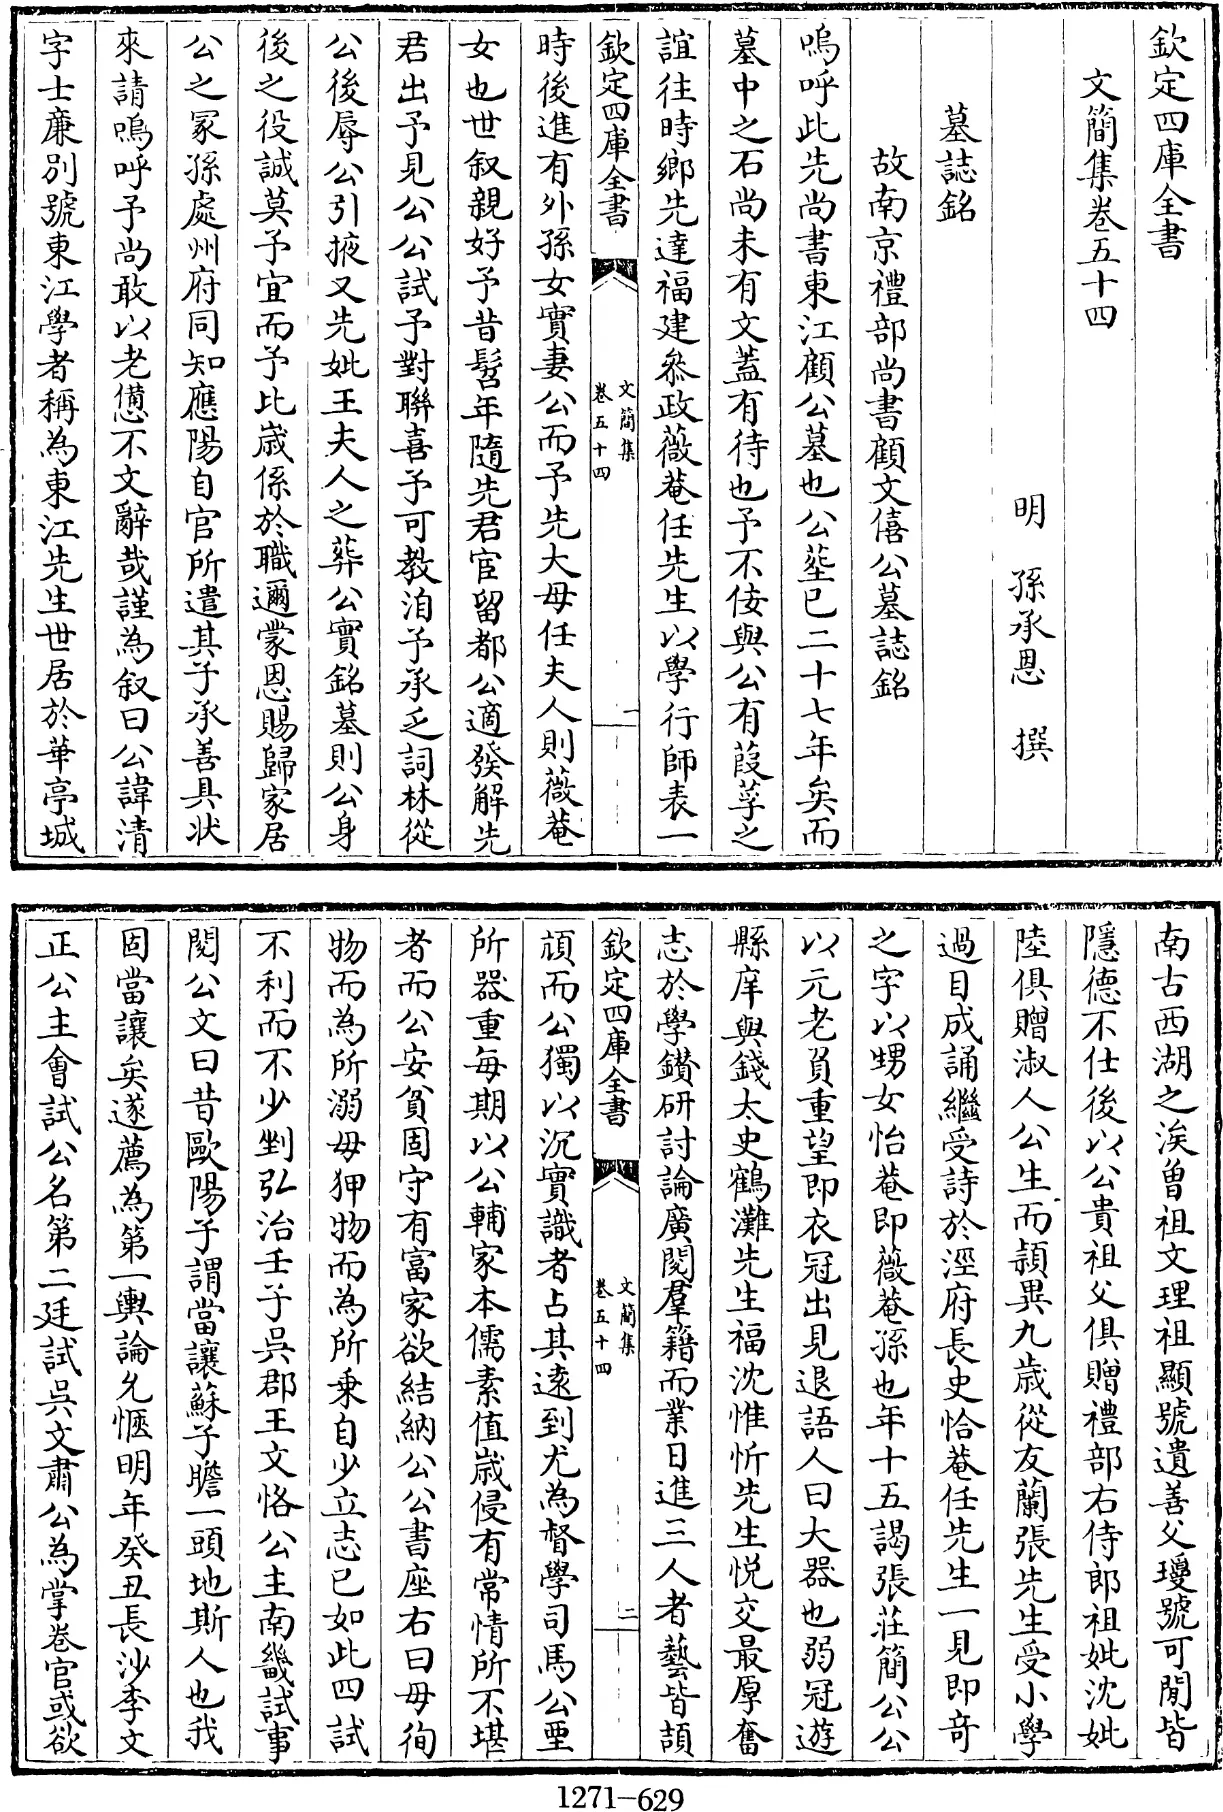 欽定四庫全書
文簡集卷五十四
明 孫承恩 撰
墓誌銘
故南京禮部尚書顧文僖公墓誌銘
嗚呼此先尚書東江顧公墓也公塟已二十七年矣而
墓中之石尚未有文葢有待也予不佞與公有葭莩之
誼往時鄉先達福建叅政薇菴任先生以學行師表一
欽定四庫全書
文簡集
卷五十四
一
時後進有外孫女實妻公而予先大母任夫人則薇菴
女也世叙親好予昔髫年隨先君宦留都公適發解先
君出予見公公試予對聯喜予可教洎予承乏詞林從
公後辱公引掖又先妣王夫人之葬公實銘墓則公身
後之役誠莫予宜而予比歲係於職邇蒙恩賜歸家居
公之冢孫處州府同知應陽自官所遣其子承善具狀
來請嗚呼予尚敢以老憊不文辭哉謹為叙曰公諱清
字士廉別號東江學者稱為東江先生世居於華亭城
南古西湖之涘曾祖文理祖顯號遺善父瓊號可閒皆
隱德不仕後以公貴祖父俱贈禮部右侍郎祖妣沈妣
陸俱贈淑人公生而頴異九歲從友蘭張先生受小學
過目成誦繼受詩於淫府長史恰菴任先生一見即竒
之字以甥女怡菴即薇菴孫也年十五謁張莊簡公公
以元老負重望即衣冠出見退語人曰大器也弱冠遊
縣庠與錢太史鶴灘先生福沈惟忻先生悅交最厚奮
志於學鑚研討論廣閱羣籍而業日進三人者藝皆頡
欽定四庫全書
文簡集
卷五十四
二
頏而公獨以沉實識者占其遠到尤為督學司馬公垔
所器重每期以公輔家本儒素值歲侵有常情所不堪
者而公安貧固守有富家欲結納公公書座右曰毋徇
物而為所溺毋狎物而為所乗自少立志已如此四試
不利而不少剉弘治壬子吳郡王文恪公主南畿試事
閱公文曰昔歐陽子謂當讓蘇子瞻一頭地斯人也我
固當讓矣遂薦為第一輿論允愜明年癸丑長沙李文
正公主會試公名第二廷試吳文肅公為掌卷官或欲
1271-629